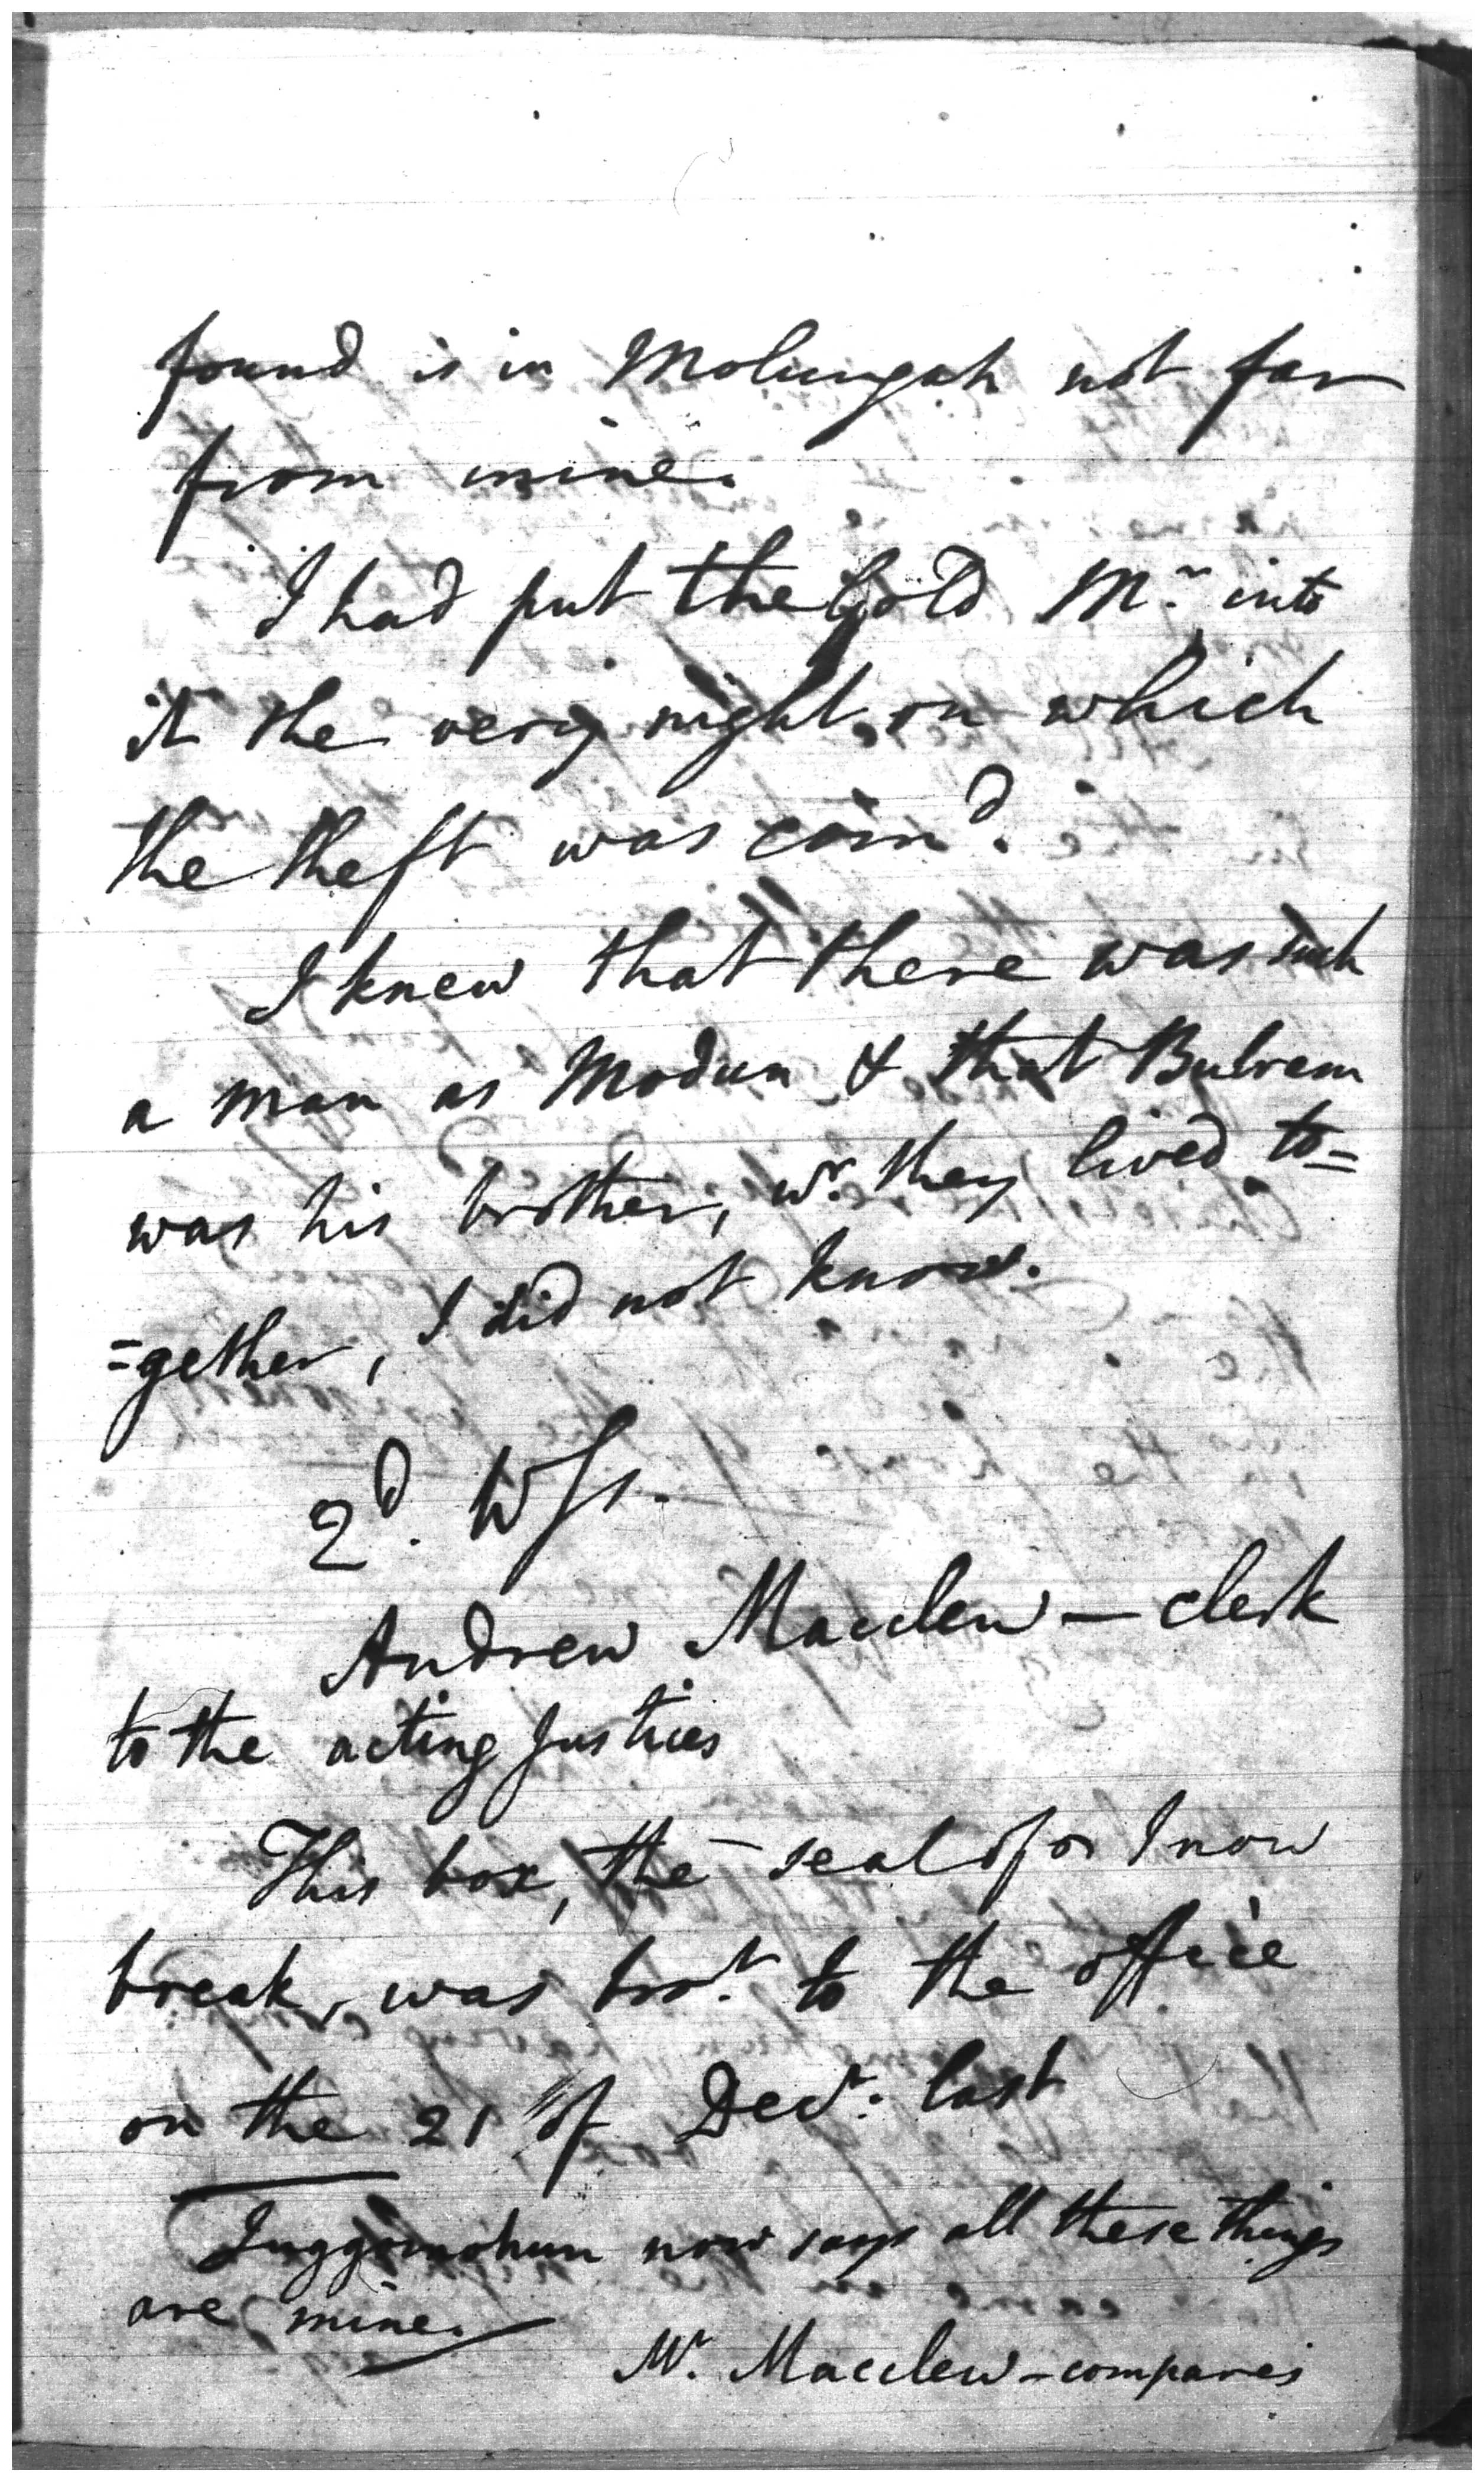 found is in Molungah not far
from mine.
I had put the Gold Mr. into
it the very night on which
the theft was comd.
I knew that there was such
a man as Modun & that Bulram
was his brother, wr. they lived to=
=gether, I did not know.
2d. Wss.
Andrew Macclew - clerk
to the acting Justices
This box, the seal of I now
break, was brot. to the office
on the 21 of Decr. last
Juggomohun now says all these things
are mine.
Mr. Macclew - compares